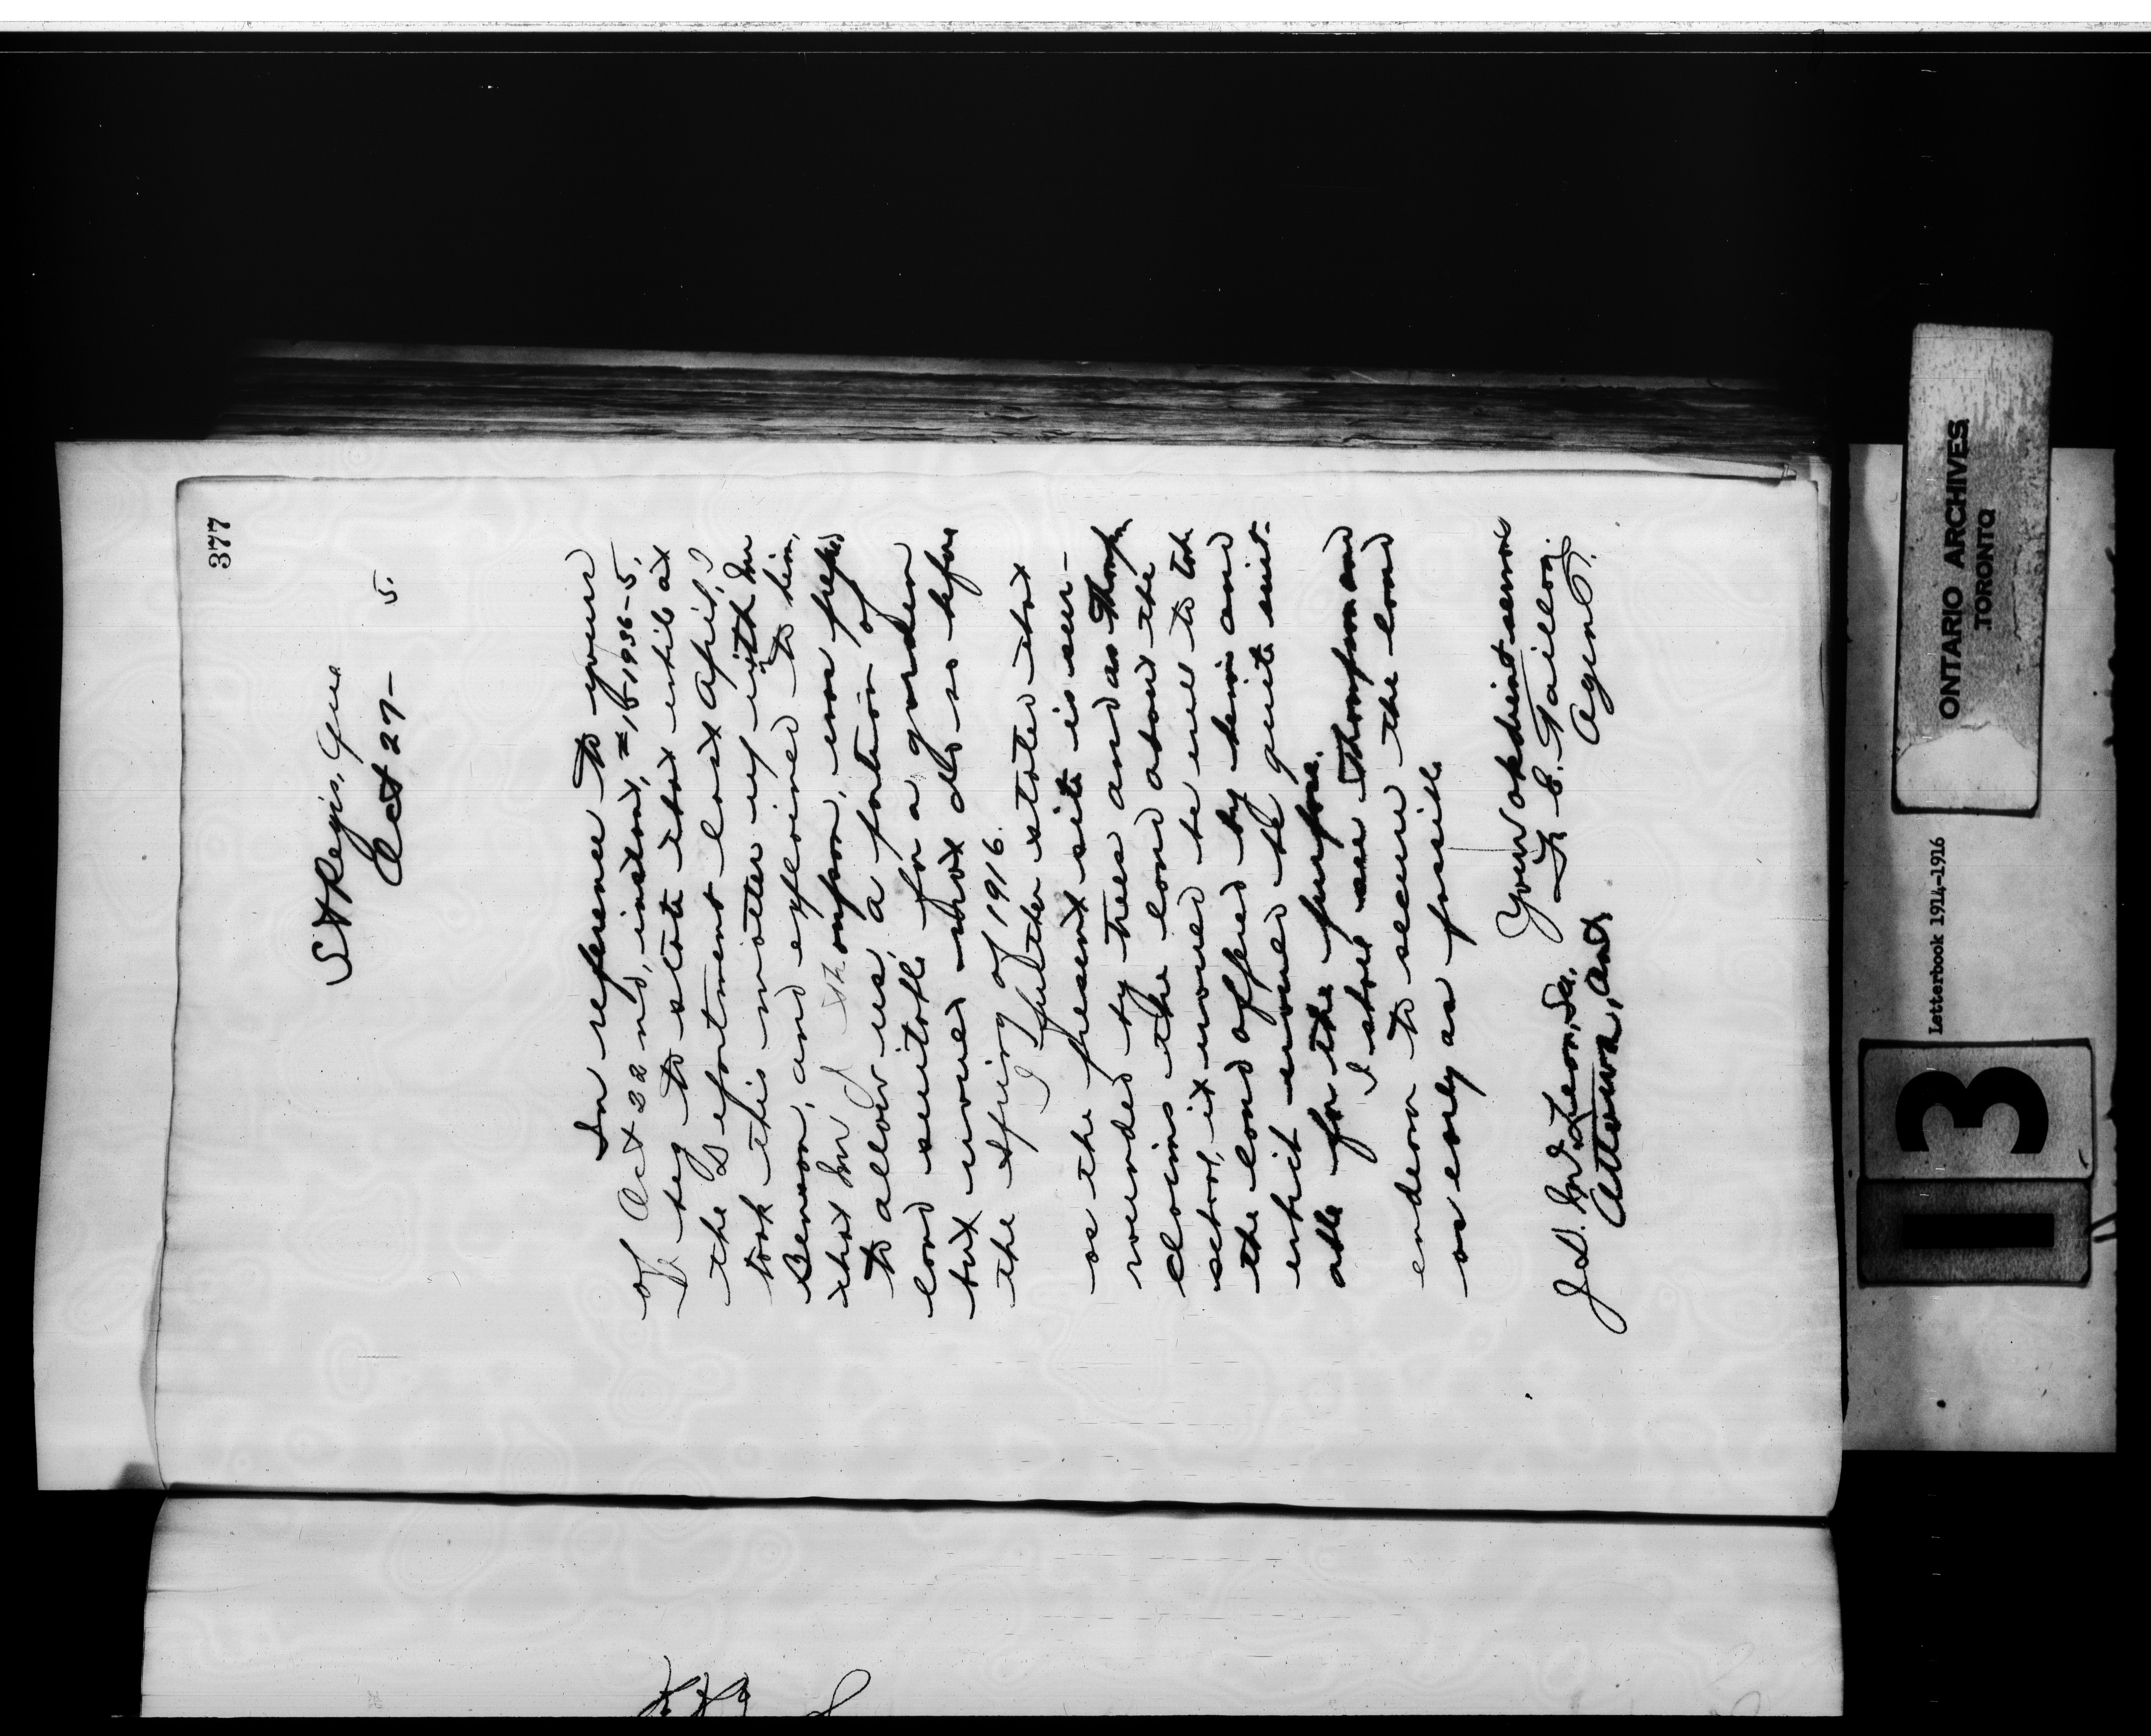 377
St Regis, Que
Oct 27- 5.
In reference to yours
of Oct 22nd, instant, # 1936-5.
I beg to state that while at
the Department last April, I
took this matter up with Mr
Benson, and explained to him,
that Mr Thompson, was prepared
to allow us, a portion of
land suitable for a garden
but would not do so before
the Spring of 1916.
I further stated that
as the present site is sur-
rounded by trees and as Thompson
claims the land about the
school, it would be well to take
the land offered by him and
which would be quite suit-
able for the purpose.
I shall see Thompson and
endeavor to secure the land
as early as possible
Your obedient servant
F. E. Taillon.
Agent.
J. D. McLean, Sec.
Ottawa, Ont.
ONTARIO ARCHIVES
TORONTO
Letterbook 1914-1916
13